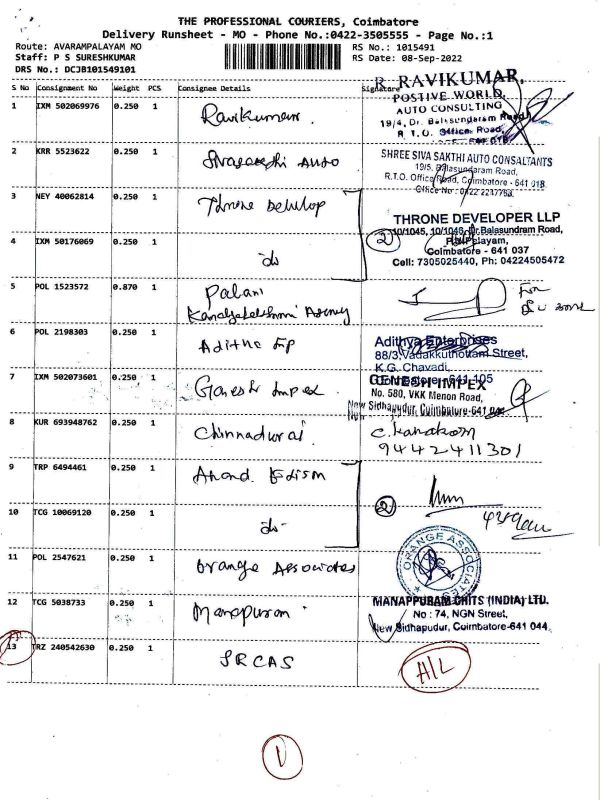 THE PROFESSIONAL COURIERS, Coimbatore
Delivery Runsheet - MO - Phone No.:0422-3505555 - Page No.:1
Route: AVARAMPALAYAM MO
Staff: P S SURESHKUMAR
DRS No.: DCJB101549101
RS No.: 1015491
RS Date: 08-Sep-2022
S No Consignment No Weight PCS Consignee Details Signature
1 IXM 502069976 0.250 1 Ravikumar
R. RAVIKUMAR,
POSTIVE WORLD,
AUTO CONSULTING
19/4, Dr. Balasundaram Road,
R.T.O. Office Road,
2 KRR 5523622 0.250 1 Auto
SHREE SIVA SAKTHI AUTO CONSALTANTS
19/5, Balasundaram Road,
R.T.O. Office Road, Coimbatore - 641 018.
Office No : 0422 2237753
3 NEY 40062814 0.250 1 Throne
THRONE DEVELOPER LLP
10/1045, 10/1046, Dr.Balasundram Road,
4 IXM 50176069 0.250 1 do
2
Coimbatore - 641 037
Cell: 7305025440, Ph: 04224505472
5 POL 1523572 0.870 1 Palani
Agency
For
6 POL 2198303 0.250 1 Adithe Ep
Adithya Enterprises
88/3, Vadakkuthottam Street,
K.G. Chavadi,
Coimbatore - 641 105
7 IXM 502073601 0.250 1 Ganesh Impex
GENESH IMPEX
No. 580, VKK Menon Road,
New Sidhapudur, Coimbatore-641 044
8 KUR 693948762 0.250 1 Chinnadurai
C. Kanakam
9442411301
9 TRP 6494461 0.250 1 Anand
10 TCG 10069120 0.250 1 do
2
11 POL 2547621 0.250 1 Orange Associates
ORANGE ASSOCIATES
12 TCG 5038733 0.250 1 Manapuram
MANAPPURAM CHITS (INDIA) LTD.
No : 74, NGN Street,
New Sidhapudur, Coimbatore-641 044
13 TRZ 240542630 0.250 1 SRCAS
A/L
1